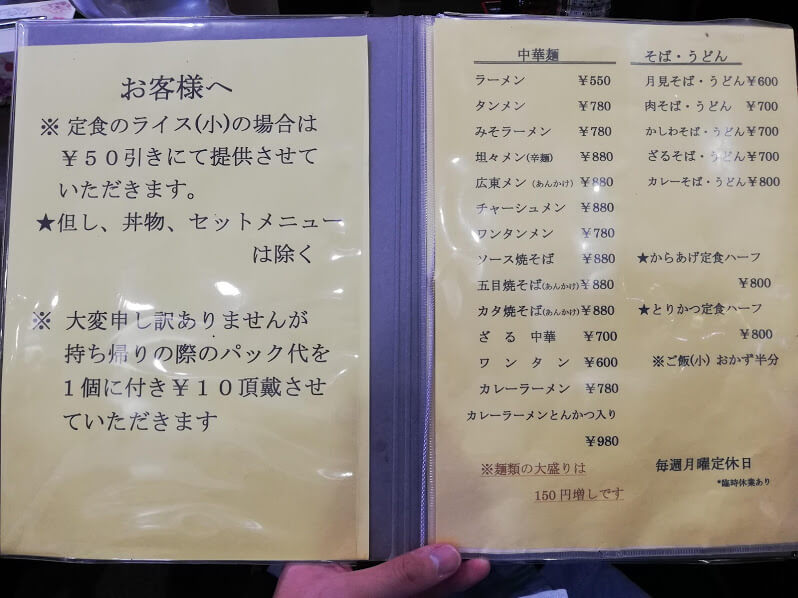 お客様へ
※ 定食のライス(小)の場合は
￥５０引きにて提供させて
いただきます。
★但し、丼物、セットメニュー
は除く
※ 大変申し訳ありませんが
持ち帰りの際のパック代を
１個に付き￥１０頂戴させ
ていただきます
中華麺
ラーメン ￥550
タンメン ￥780
みそラーメン ￥780
坦々メン(辛麺) ￥880
広東メン（あんかけ）￥880
チャーシュメン ￥880
ワンタンメン ￥780
ソース焼そば ￥880
五目焼そば(あんかけ)￥880
カタ焼そば(あんかけ)￥880
ざる中華 ￥700
ワンタン ￥600
カレーラーメン ￥780
カレーラーメンとんかつ入り
￥980
※麺類の大盛りは
150円増しです
そば・うどん
月見そば・うどん￥600
肉そば・うどん ￥700
かしわそば・うどん￥700
ざるそば・うどん￥700
カレーそば・うどん￥800
★からあげ定食ハーフ
￥800
★とりかつ定食ハーフ
￥800
※ご飯(小) おかず半分
毎週月曜定休日
*臨時休業あり